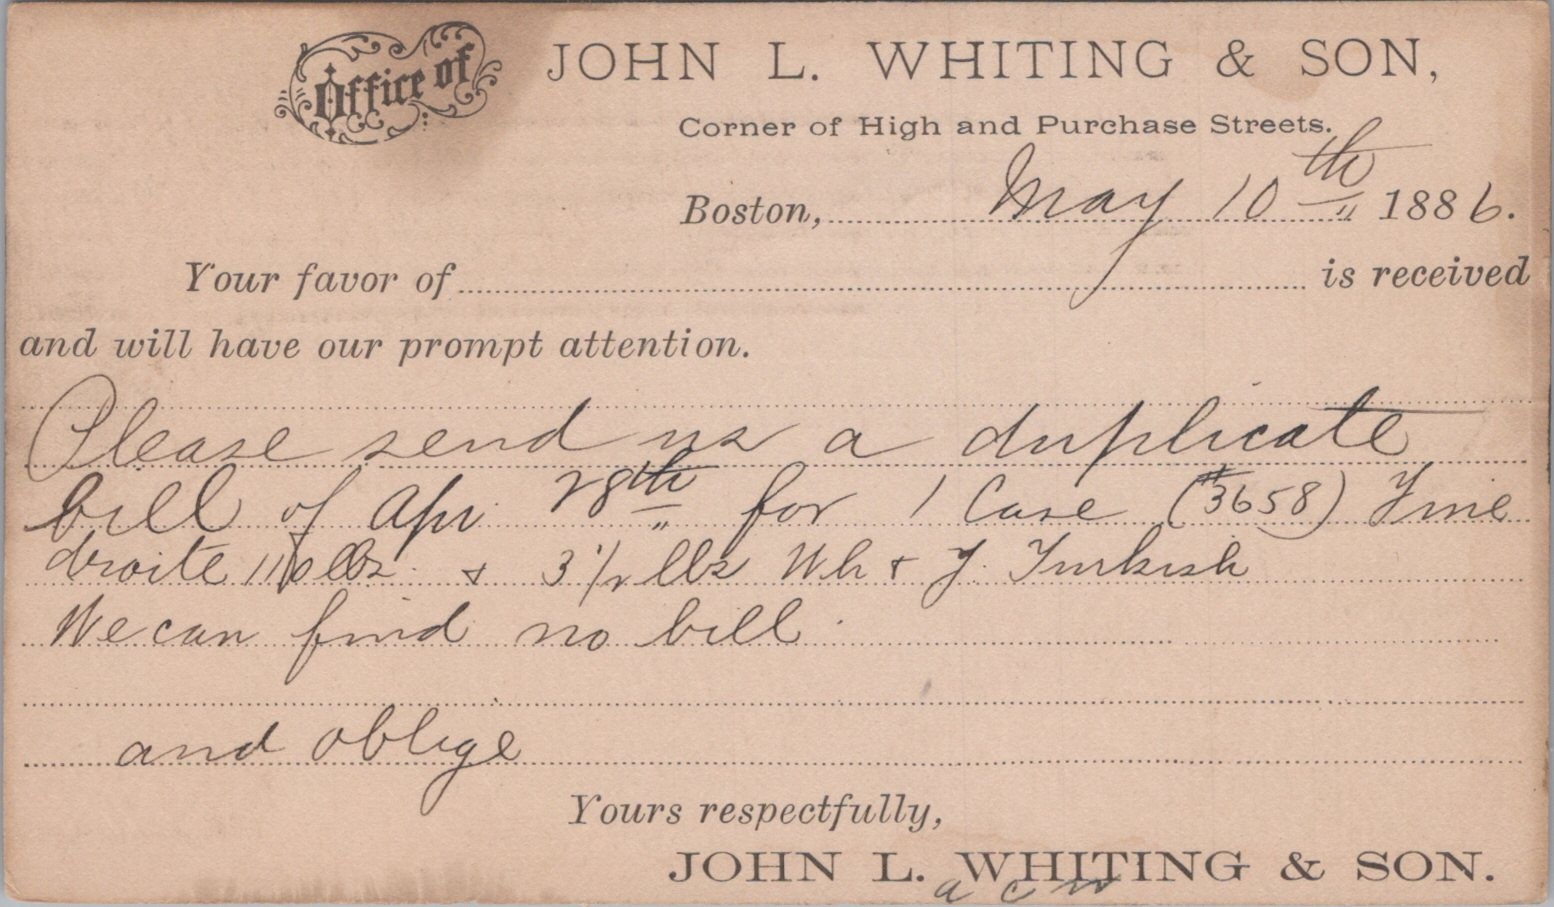 Office of JOHN L. WHITING & SON,
Corner of High and Purchase Streets.
Boston, May 10th 1886.
Your favor of is received
and will have our prompt attention.
Please send us a duplicate
bill of Apr 28th for 1 Case (#3658) Fine
droite lbs & 3 1/2 lbs Wh & Y. Turkish
We can find no bill.
and oblige
Yours respectfully,
JOHN L. WHITING & SON.
a c w